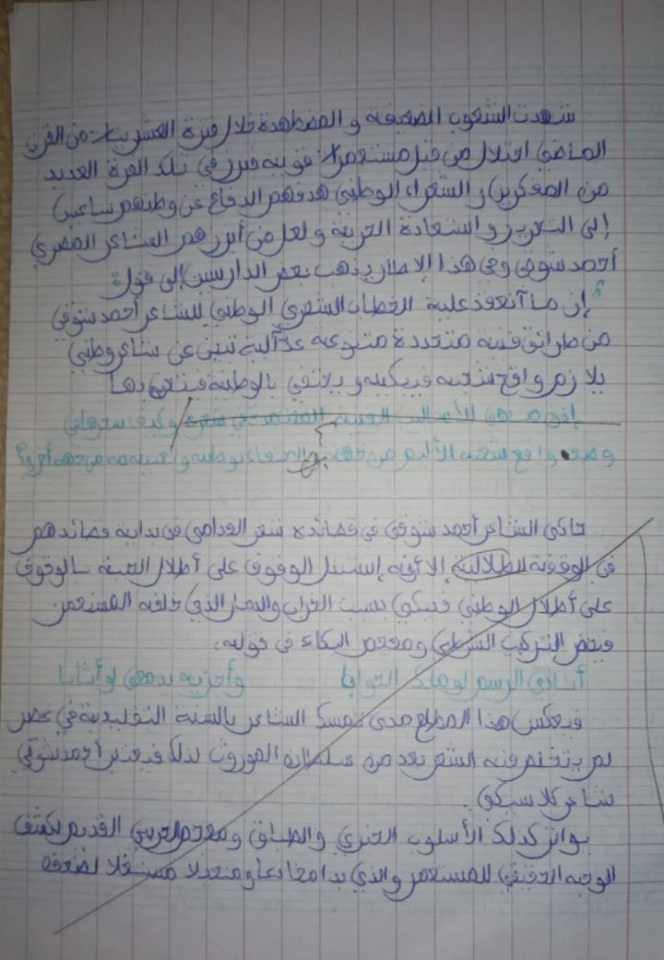 شهدت الشعوب الضعيفة و المضطهدة خلال فترة العشرينات من القرن
الماضي احتلال من قبل مستعمر قوته فبرز في تلك الفترة العديد
من المفكرين و الشعراء الوطني هدفهم الدفاع عن وطنهم ساعين
إلى التحرير و استعادة الحرية و لعل من أبرزهم الشاعر المصري
أحمد شوقي وفي هذا الإطار يذهب بعض الدارسين إلى قول
إن ما آنعقد علية الخطاب الشعري الوطني للشاعر أحمد شوقي
من طرائق فنية متعددة متنوعة عد آلية تبين عن شاعر وطني
يلازم واقع شعبه فيبكيه و يحتفي بالوطنية فتغنى بها
إذن ما هي الأساليب الفنية في شعره و كيف
واقع شعبه الأليم من جهة بوطنه و من جهة أخرى؟
حاكى الشاعر أحمد شوقي في قصائده شعر القدامى في بداية قصائدهم
في الوقفة الطلالية إلا أنه إستبدل الوقوف على أطلال الحبيبة بالوقوف
على أطلال الوطني فيبكي بسبب الخراب والدمار الذي خلفه المستعمر
التركيب الشرطي ومعجم البكاء في قوله:
أنادي الرسم لو ملك الجوابا وأجزيه بدمعي لو أثابا
فيعكس هذا المطلع مدى تمسك الشاعر بالسنة التقليدية في عصر
لم يتخلص فيه الشعر بعد من سلطانه الموروث لذلك فيعتبر أحمد شوقي
شاعر كلاسيكي.
كذلك الأسلوب الخبري والطباق ومعجم الحربي القديم يكشف
الوجه الحقيقي للمستعمر والذي بدا مخادعا و مستغلا لضعفه